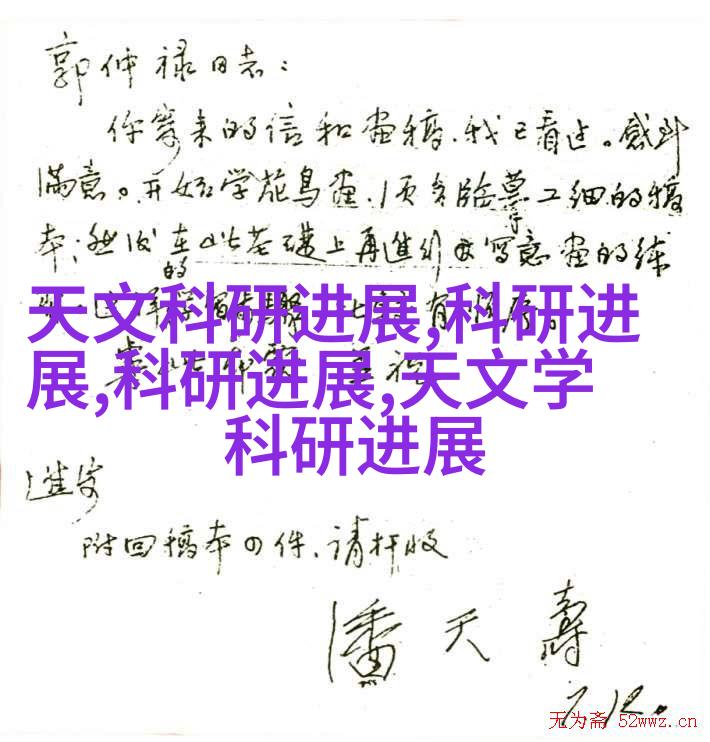 郭仲禄同志：
你寄来的信和画稿，我已看过。感到
满意。开始学花鸟画，须多临摹工细的稿
本；然后在此基础上再进行写意画的练
的
天文科研进展,科研进
展,科研进展,天文学
科研进展
进步
附回稿本四件，请检收
潘天寿
7.12.
无为斋 52wwz.cn